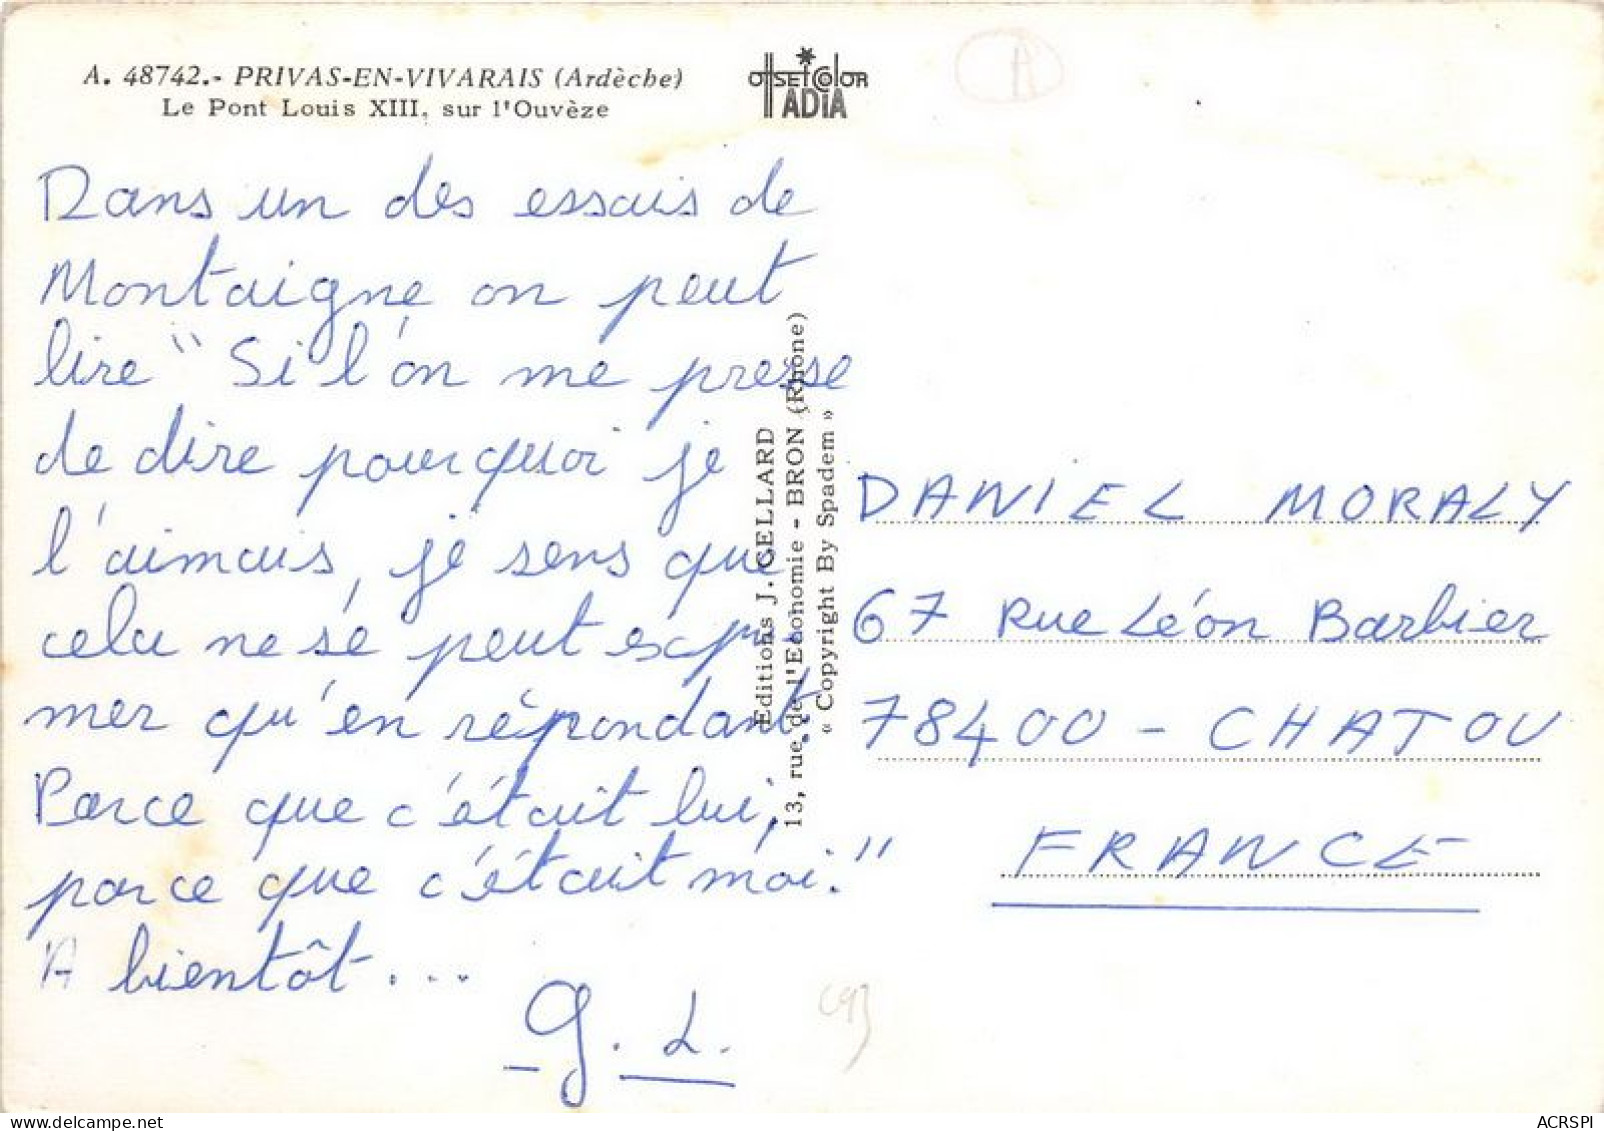 A. 48742.- PRIVAS-EN-VIVARAIS (Ardèche)
Le Pont Louis XIII, sur l'Ouvèze
OFFSET COLOR
ADIA
Dans un des essais de
Montaigne on peut
lire " Si l'on me presse
de dire pourquoi je
l'aimais, je sens que
cela ne sé peut expri
mer qu'en répondant
Parce que c'était lui,
parce que c'était moi."
A bientôt...
G. L.
Editions J. CELLARD
13, rue de l'Economie - BRON (Rhône)
« Copyright By Spadem »
DANIEL MORALY
67 Rue Léon Barbier
78400 - CHATOU
FRANCE
ACRSPI